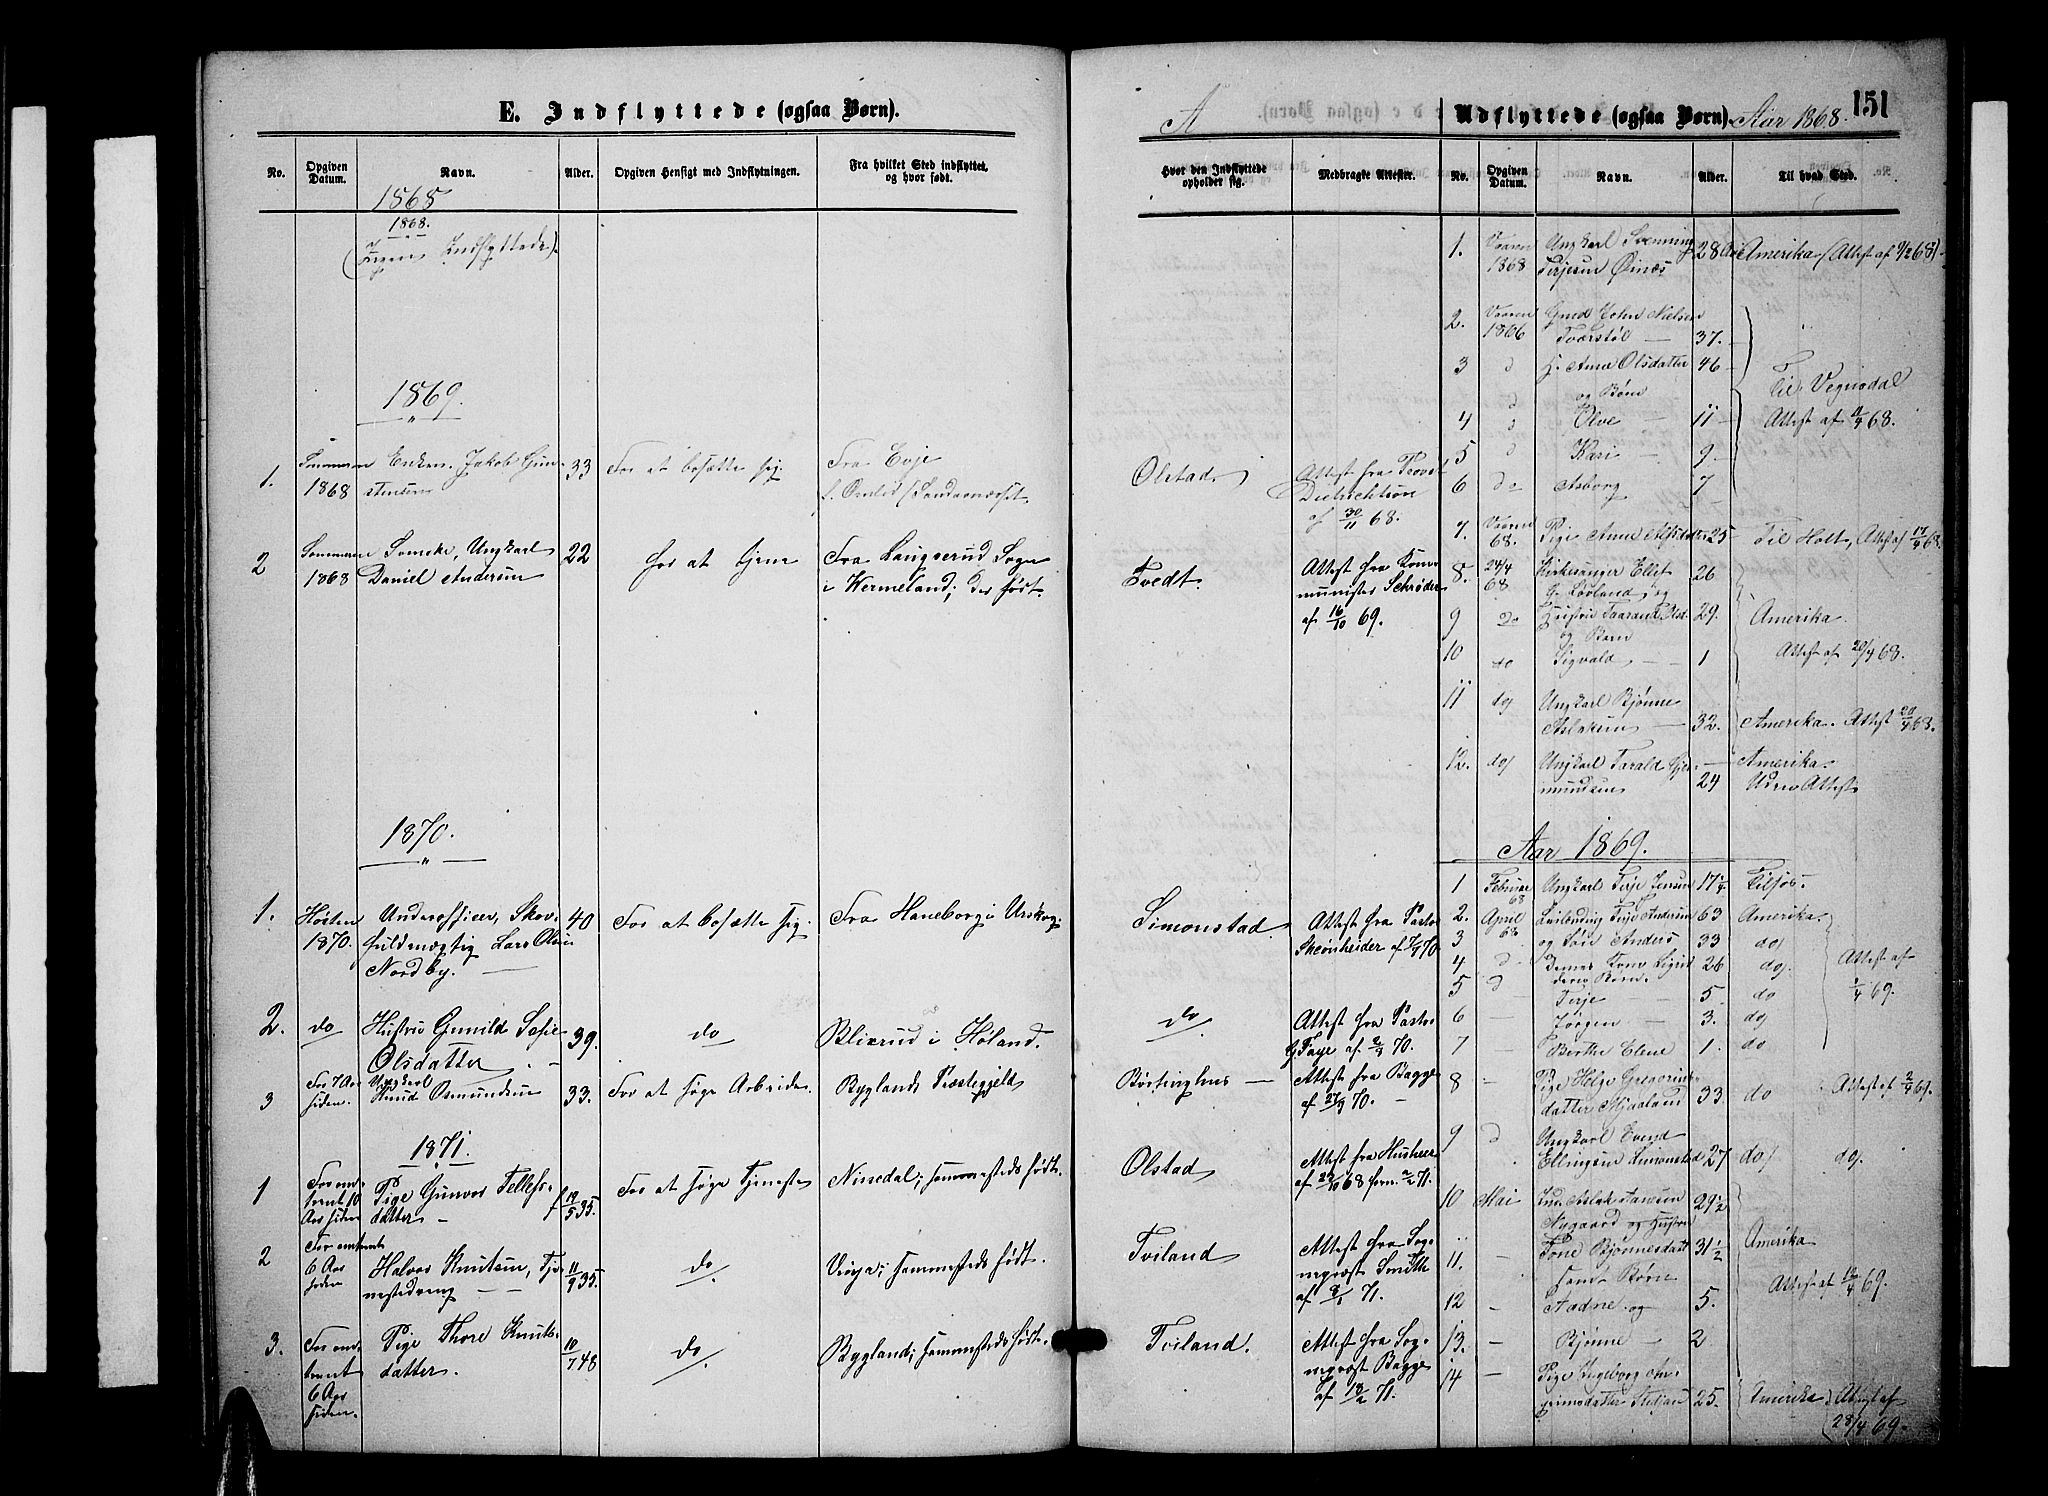 E. Indflyttede (ogsaa Børn).
No.
Opgiven Datum.
Navn.
Alder.
Opgiven Hensigt med Indflytningen.
Fra hvilket Sted indflyttet, og hvor født.
1868
1868.
(Ingen Indflyttede).
1869.
1.
1868
Jakob Gun-
33
For at bosætte sig.
Fra Evje
2
Sommeren
1868
Ungkarl
Daniel Andersen
22
for at tjene
Fra Sogn
i Wermeland; der født.
1870.
1.
Høsten
1870.
Underofficer, Skov-
fuldmægtig Lars Olsen
Nordby.
40
For at bosætte sig.
Fra Haneborg i Urskog.
2.
do
Hustru Gunild Sofie
Olsdatter
39.
do
Blixrud i Høland.
3
For 7 Aar
siden.
Ungkarl
Knud Osmundsen
33.
For at søge Arbeide.
Byglands Præstegjeld
1871.
1
For om-
trent 10
Aar siden
Pige Gunvor Tellefs-
datter
f 19/5 35.
For at søge Tjeneste
Nissedal; sammesteds født.
2
For omtrent
6 Aar
siden
Halvor Knutsen, Tje-
nestedreng
11/9 35.
do
Vinje; sammesteds født.
3.
For om-
trent
6 Aar
siden.
Pige Thore Knuts-
datter.
10/7 48
do
Bygland; sammesteds født.
A
Udflyttede (ogsaa Børn).
Aar 1868.
151
Hvor den Indflyttede opholder sig.
Medbragte Attester.
No.
Opgiven Datum.
Navn.
Alder.
Til hvad Sted.
Olstad.
Attest fra Provst
Dietrichson
af 30/11 68.
Tvedt.
Attest fra Kom-
minister Schrøder
af 16/10 69.
Simonstad.
Attest fra Pastor
af 7/9 70
do
Attest fra Pastor
G. Faye af 2/3 70.
Børtinghus
Attest fra Bagge
af 27/9 70.
Olstad
Attest fra
Tviland
Attest fra Sog-
nepræst Smith
af 8/1 71.
Tviland.
Attest fra Sog-
nepræst Bagge
af 18/2 71.
1.
Vaaren
1868
Ungkarl Svenning
Terjesen Øinæs
28 Aar
Amerika (Attest af 9/2 68).
2.
Vaaren
1866
Gmd John Nielsen
Tværstøl
37.
3
d
H. Anne Olsdatter
46
og Børn
4
d
Olve
11
5
d
Kari
9.
6
do
Asborg
7
Til Vegusdal
Attest af 11/4 68.
7.
Vaaren
68.
Pige Anne
25
Til Holt, Attest af 17/4 68.
8.
24/4
68
Kirkesanger Ellef
G. Løvland, og
26
9
do
29.
og Barn
10
do
Sigvald
1
Amerika.
Attest af 20/4 68.
11
do
Ungkarl Bjønne
Aslaksen
32.
Amerika. Attest 20/4 68.
12.
do
Ungkarl Tarald Gjer-
mundsen
24
Amerika.
Uden Attest
Aar 1869.
1
Februar
68
Ungkarl Terje Jensen
17 1/2
2.
April
68
Terje Andersen
63
Amerika.
3
og Søn Anders
33
do
4
d
Dennes Kone Sigrid
26
do.
deres Børn.
5
d
Terje
5.
do
6
Jørgen
3.
do
7
Berthe Elene
1.
do
Attest af
1/4 69.
8
Pige Helge Gregorius-
datter Mjaaland
33.
do
Attest af 2/4 69.
9
d
Ungkarl Evend
Ellingsen Simonstad
27
do
do.
10
Mai
Ind. Aslak Aanesen
Nygaard og Hustru
29 1/2
11.
Tone Bjønnesdatt
31 1/2
samt Børn
12
Aadne og
5.
13.
Bjønne
2
Amerika
Attest af 19/4 69.
14
Pige Ingeborg An-
25.
Amerika
Attest af
28/4 69.